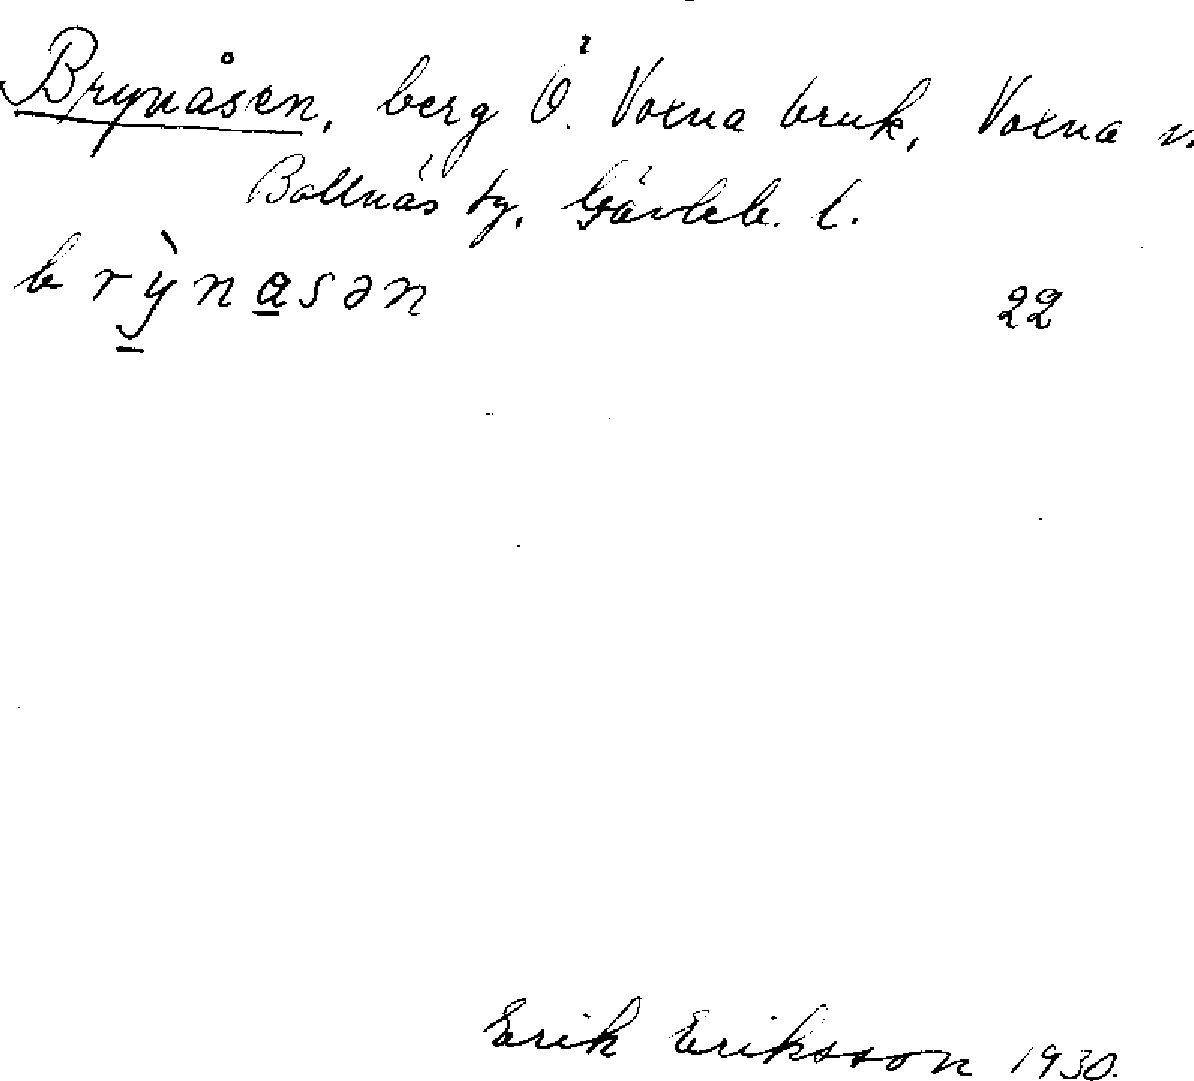 Brynåsen, berg Ö. Voxna bruk, Voxna
Bollnäs tg, Gävleb. l.
brỳnasən 22
Erik Eriksson 1930.